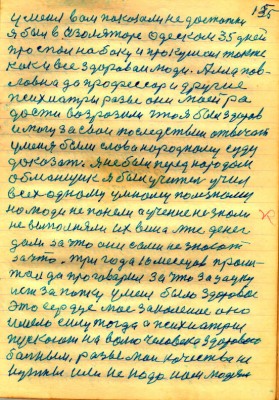 у меня вам показали не достатки
я был в изоляторе Одеском 35 дней
простоял на боку и прокушал также
как и все здоровая люди. Алла пав-
ловна да профессор и другие
психиатры разве они моей ра
дости возрозили что я был здоров
и могу за свои последствия отвечать
у меня были слова народному суду
доказать. Я не был перед народом
обманщик я был учителем учил
всех одному умному полезному
но люди не поняли а учение не знали
не выполняли их вина мне денег
дали за это они сами не знают
за что. три года 10 месяцев прош-
тал до проговора за что за науку
истца почему у меня было здоровое
это сердце мое закаленое оно
имело силу тогда а психиатры
пускают на волю человека здорового
больным, разве мои качества не
нужны или не надо нам людям